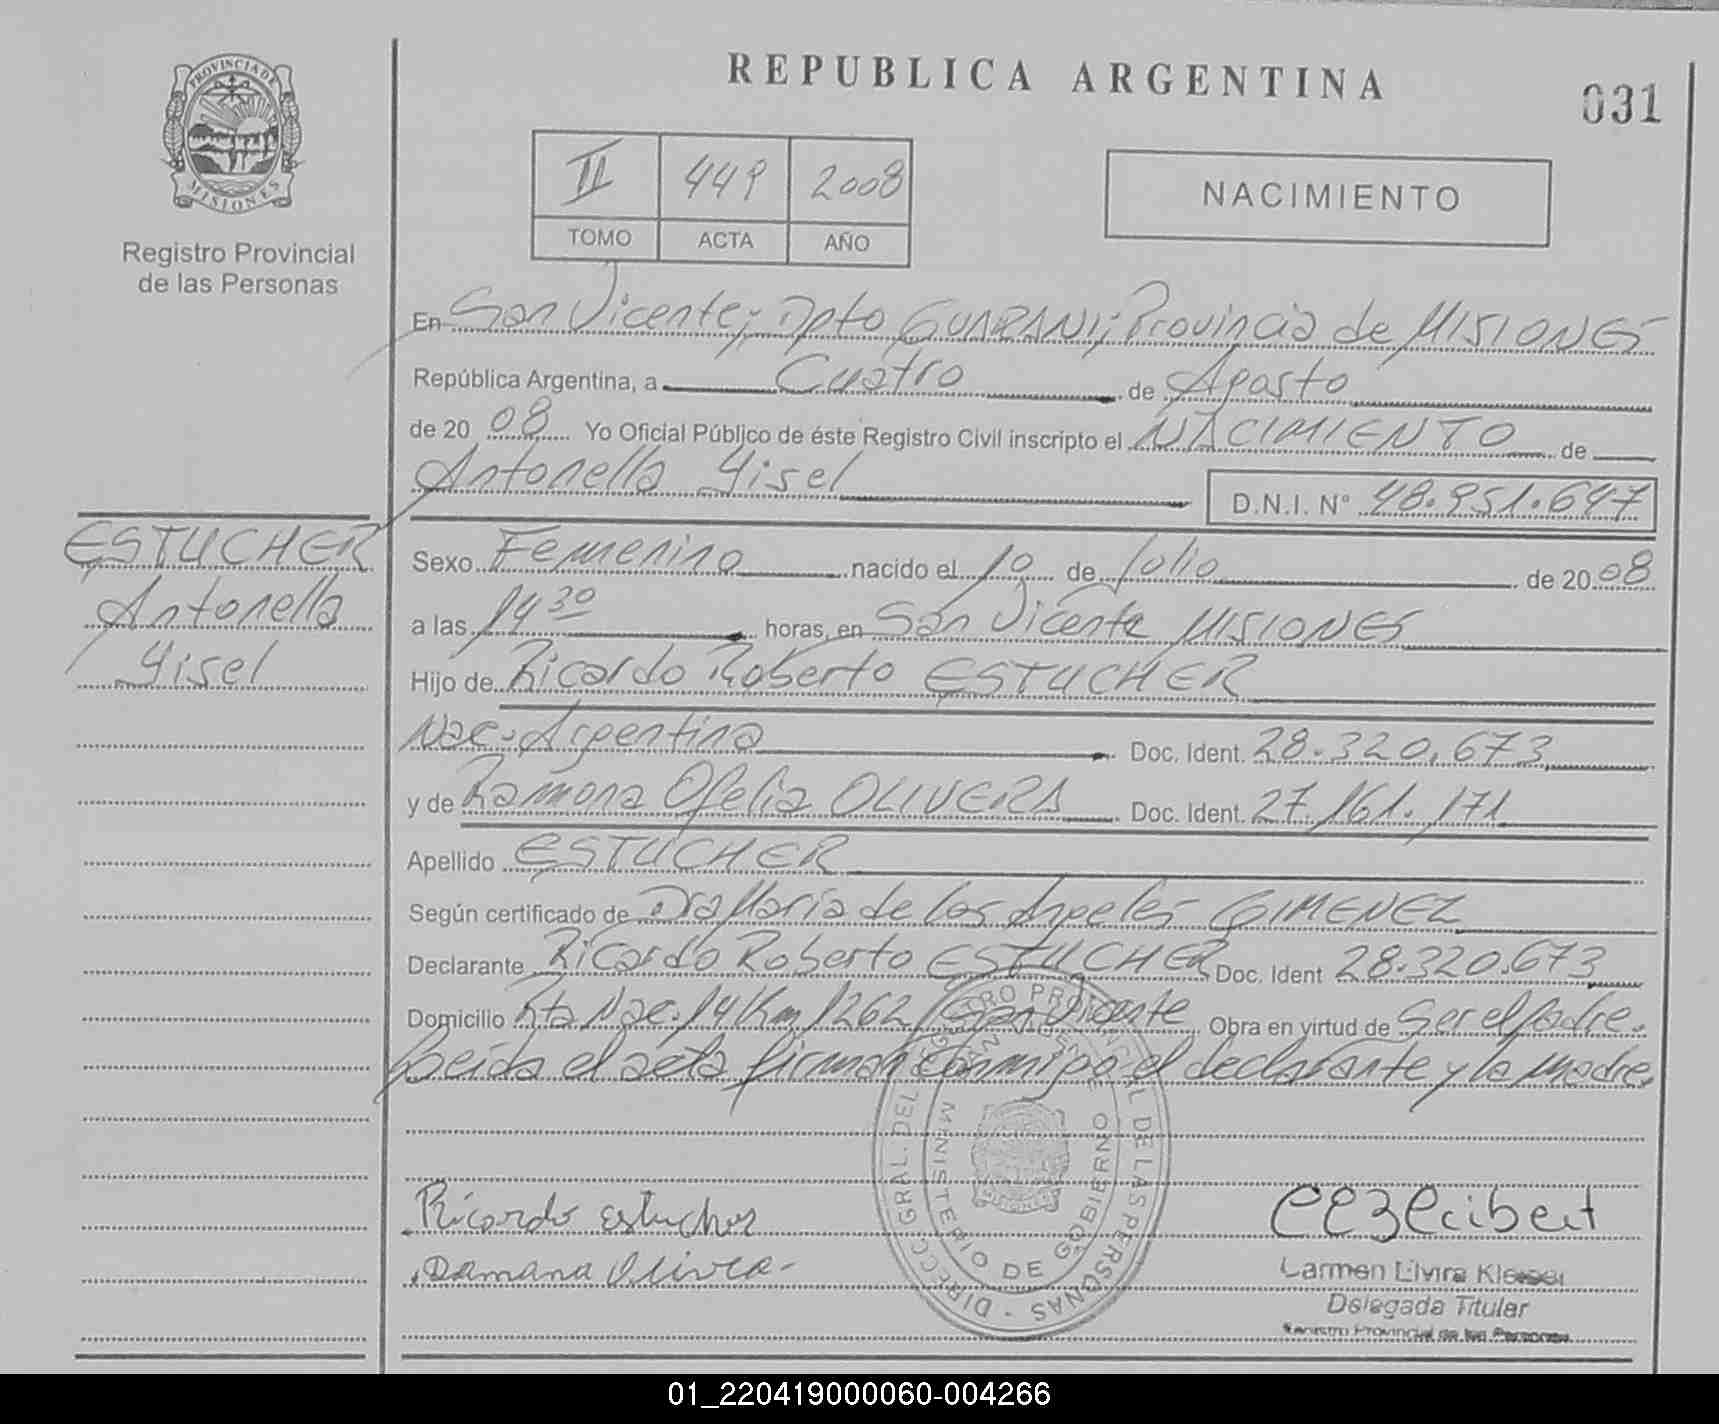 PROVINCIA DE
MISIONES
Registro Provincial
de las Personas
REPUBLICA ARGENTINA
031
II 449 2008
TOMO ACTA AÑO
NACIMIENTO
En San Vicente; Dpto GUARANI; Provincia de MISIONES
República Argentina, a Cuatro de Agosto
de 2008 Yo Oficial Público de éste Registro Civil inscripto el NACIMIENTO de
Antonella Yisel D.N.I. Nº 48.951.647
ESTUCHER
Antonella
Yisel
Sexo Femenino nacido el 10 de Julio de 2008
a las 14 30 horas, en San Vicente MISIONES
Hijo de Ricardo Roberto ESTUCHER
Nac. Argentina Doc. Ident. 28.320.673
y de Ramona Ofelia OLIVERA Doc. Ident. 27.161.171
Apellido ESTUCHER
Según certificado de Dra Maria de Los Angeles GIMENEZ
Declarante Ricardo Roberto ESTUCHER Doc. Ident 28.320.673
Domicilio Rta Nac. 14 Km 1262 San Vicente Obra en virtud de Ser el padre.
Leida el acta firman conmigo el declarante y la madre.
DIRECC. GRAL. DEL REGISTRO PROVINCIAL DE LAS PERSONAS -
MINISTERIO DE GOBIERNO
Ricardo Estucher
Ramona Olivera
Carmen Elvira
Delegada Titular
Registro Provincial de las Personas
01_220419000060-004266